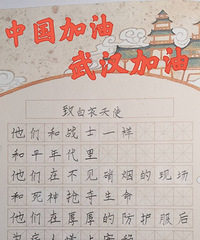 中国加油
武汉加油
致白衣天使
他们和战士一样
和平年代里
他们在不见硝烟的现场
和死神抢夺生命
他们在厚厚的防护服后